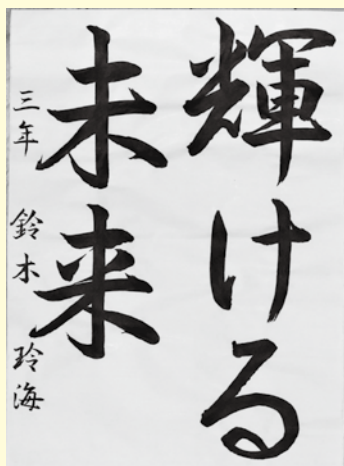 輝ける
未来
三年 鈴木 玲海